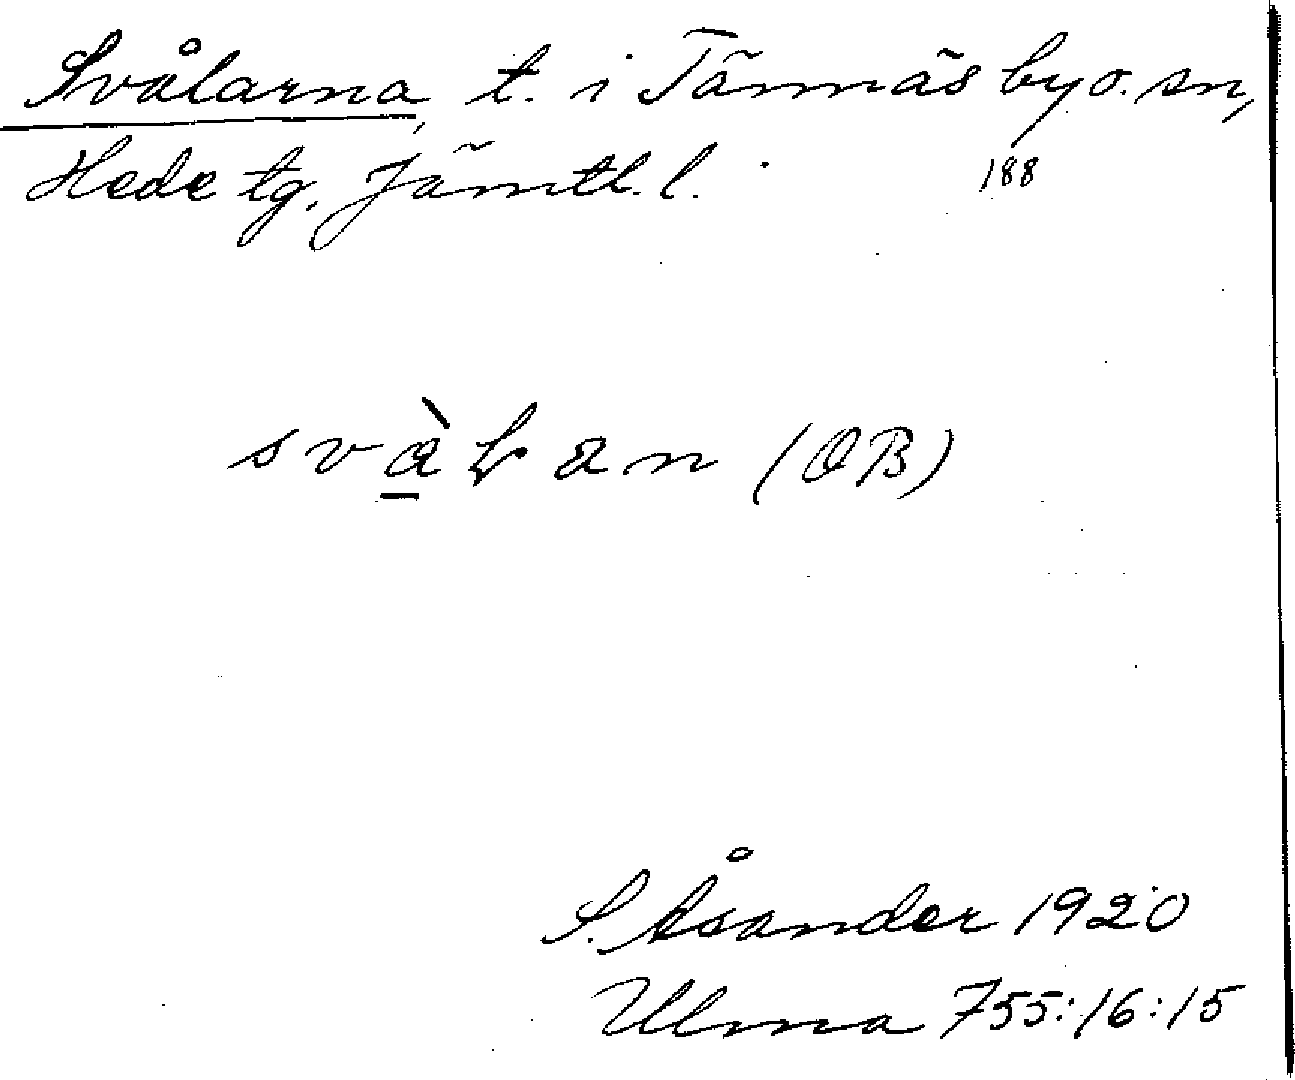 Svålarna, t. i Tännäs by o. sn,
Hede tg, Jämtl. l.
188
svàɫan (OB)
S. Åsander 1920
Ulma 755:16:15